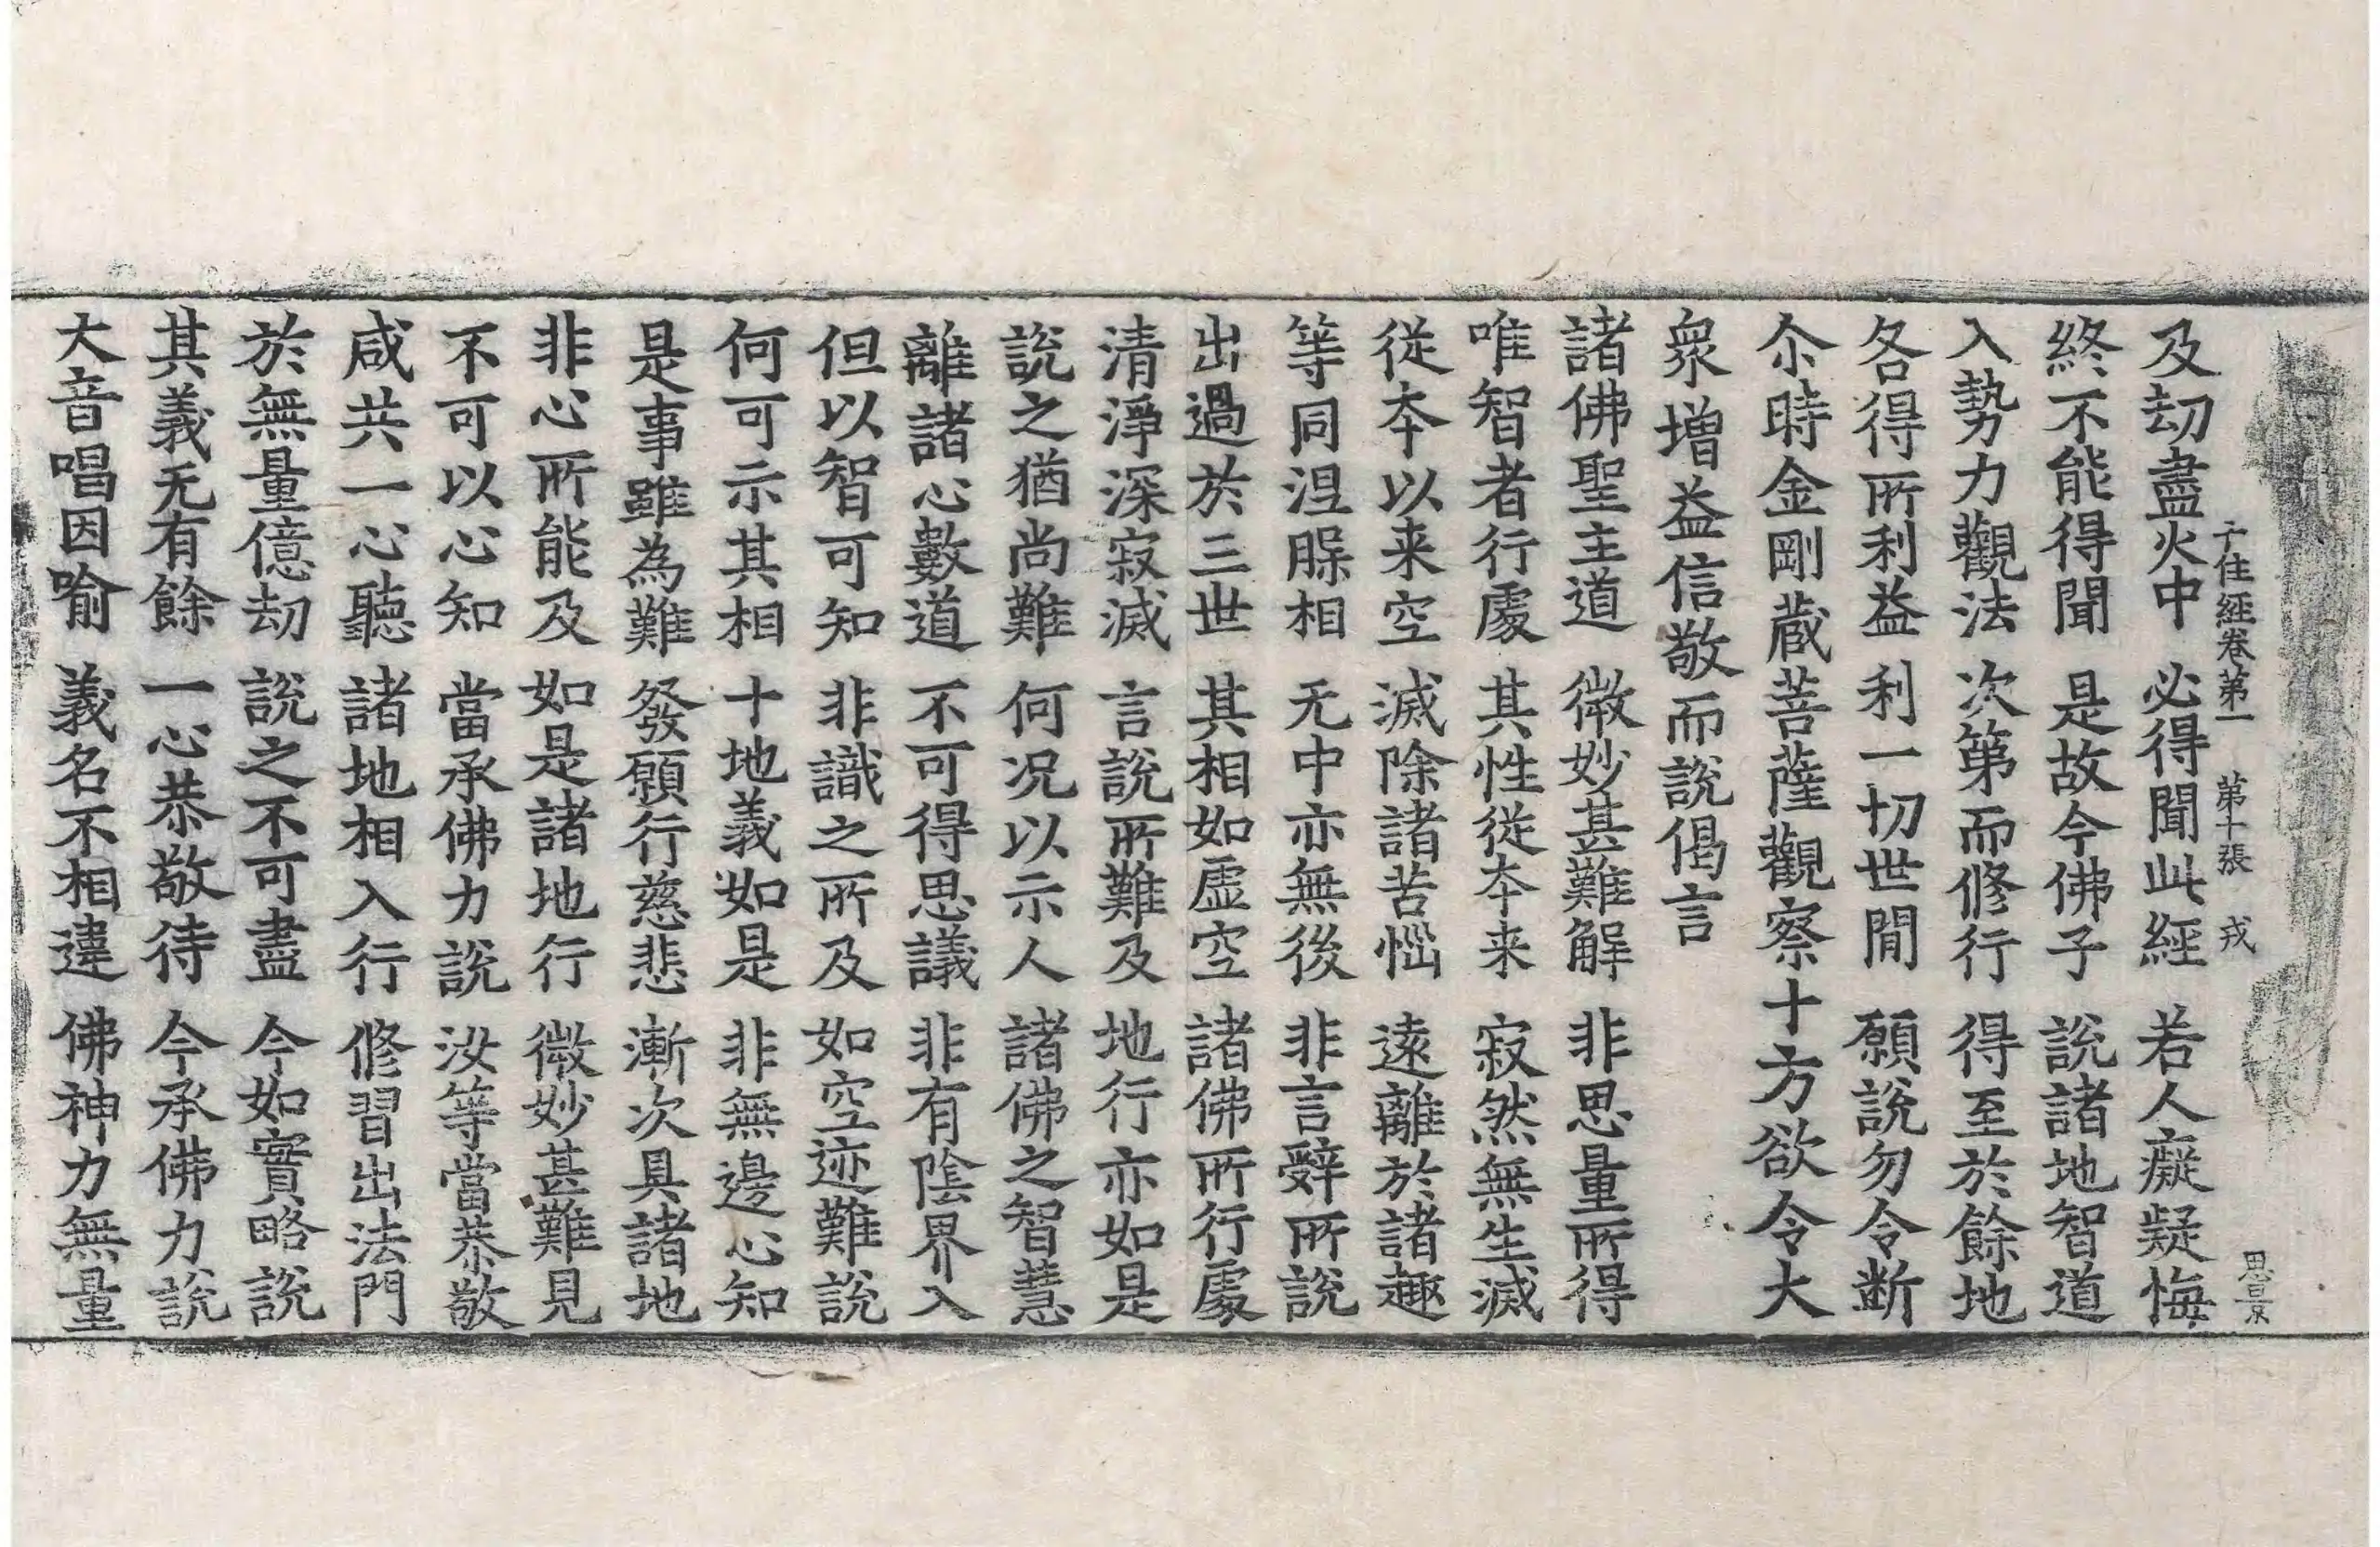 十住經卷第一　第十張　戎
恩景
及劫盡火中　必得聞此經　若人癡疑悔
終不能得聞　是故今佛子　說諸地智道
入勢力觀法　次第而修行　得至於餘地
各得所利益　利一切世間　願說勿令斷
尒時金剛藏菩薩觀察十方欲令大
衆增益信敬而說偈言
諸佛聖主道　微妙甚難解　非思量所得
唯智者行處　其性從夲来　寂然無生滅
從夲以来空　滅除諸苦惱　遠離於諸趣
等同涅槃相　无中亦無後　非言辭所說
出過於三世　其相如虛空　諸佛所行處
清淨深寂滅　言說所難及　地行亦如是
說之猶尚難　何况以示人　諸佛之智慧
離諸心數道　不可得思議　非有陰界入
但以智可知　非識之所及　如空迹難說
何可示其相　十地義如是　非無邊心知
是事雖為難　發願行慈悲　漸次具諸地
非心所能及　如是諸地行　微妙甚難見
不可以心知　當承佛力說　汝等當恭敬
咸共一心聽　諸地相入行　修習出法門
於無量億劫　說之不可盡　今如實略說
其義无有餘　一心恭敬待　今承佛力說
大音唱因喻　義名不相違　佛神力無量